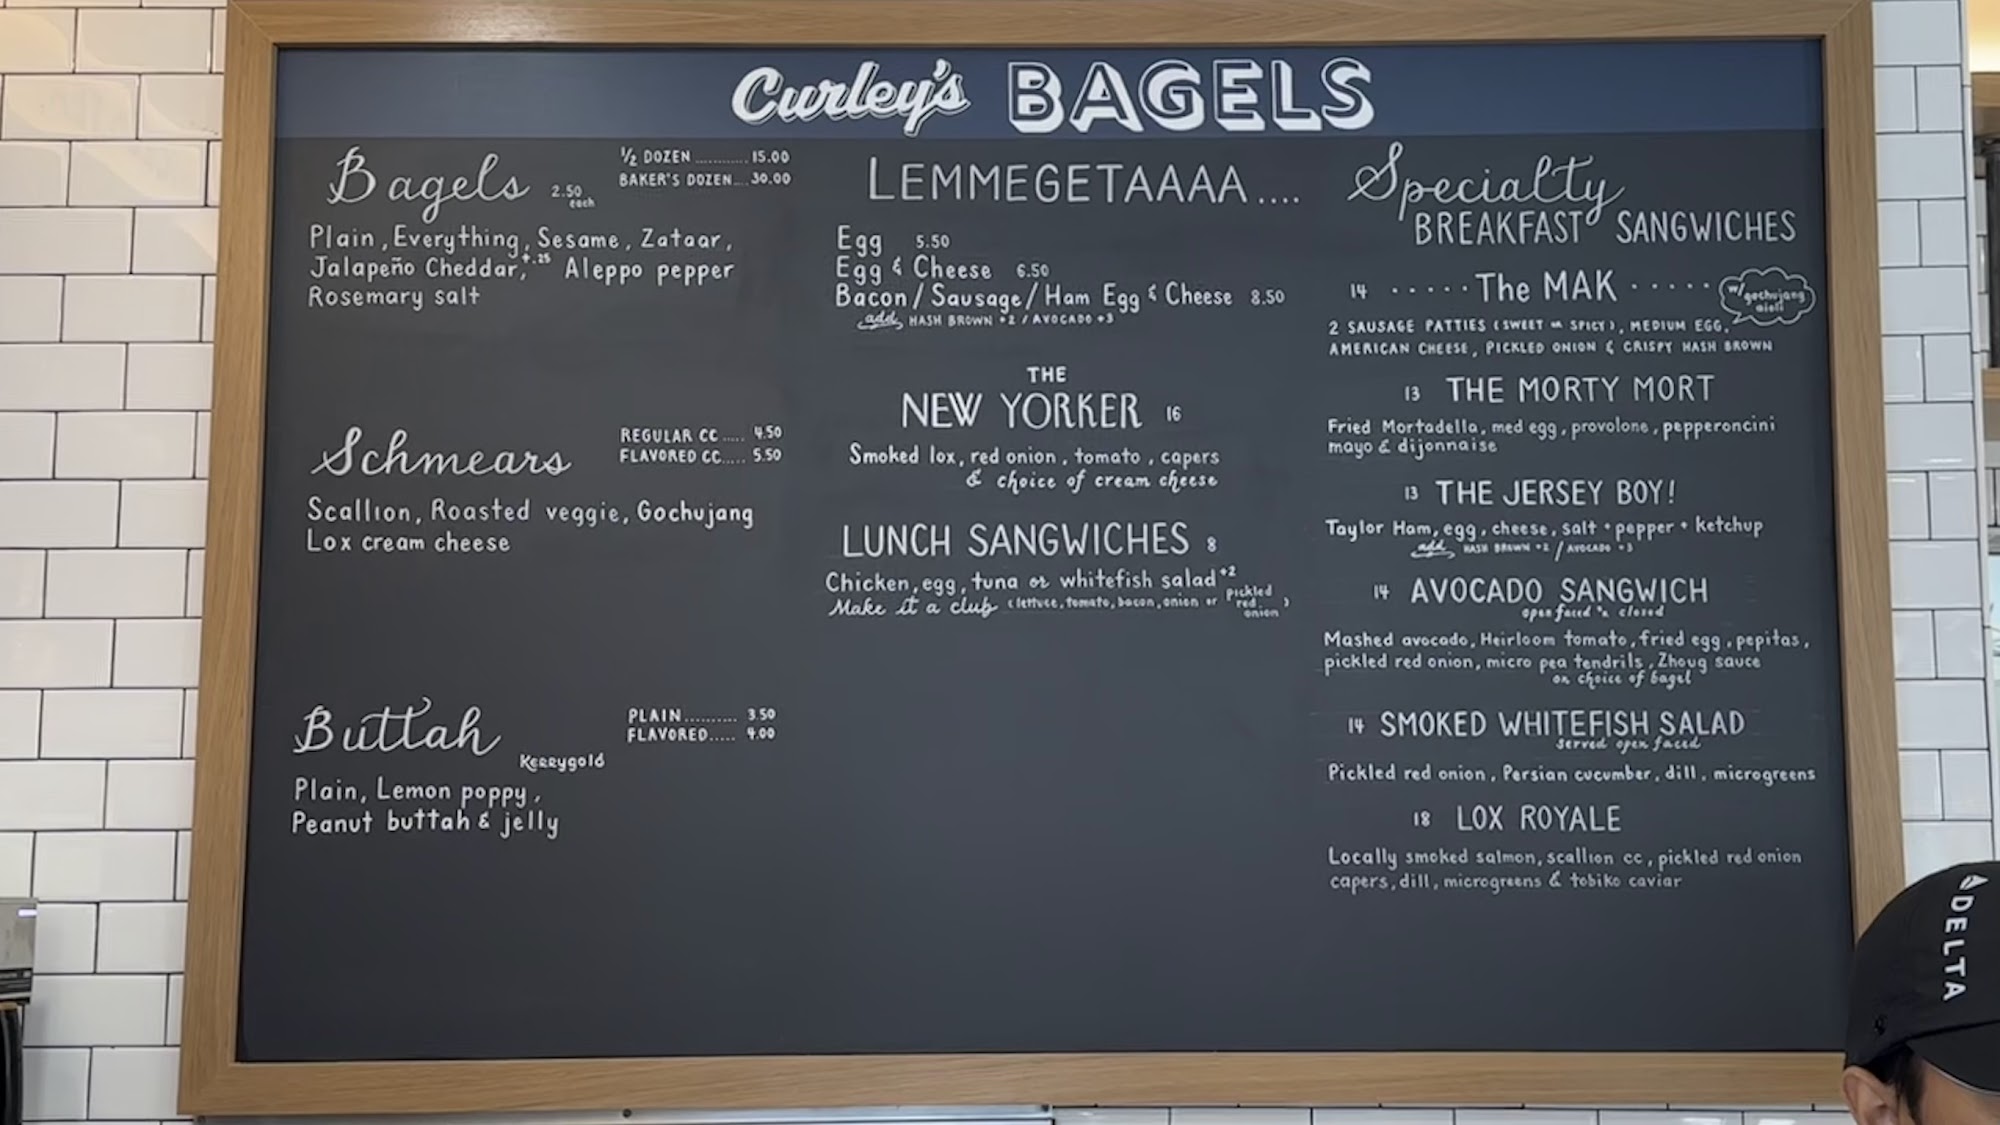 Curley's BAGELS
Bagels 2.50 each
1/2 DOZEN ............ 15.00
BAKER'S DOZEN ... 30.00
Plain, Everything, Sesame, Zataar,
Jalapeño Cheddar, +.25 Aleppo pepper
Rosemary salt
Schmears
REGULAR CC ..... 4.50
FLAVORED CC..... 5.50
Scallion, Roasted veggie, Gochujang
Lox cream cheese
Buttah
Kerrygold
PLAIN .......... 3.50
FLAVORED ..... 4.00
Plain, Lemon poppy,
Peanut buttah & jelly
LEMMEGETAAAA ....
Egg 5.50
Egg & Cheese 6.50
Bacon / Sausage / Ham Egg & Cheese 8.50
add HASH BROWN +2 / AVOCADO +3
THE
NEW YORKER 16
Smoked lox, red onion, tomato, capers
& choice of cream cheese
LUNCH SANGWICHES 8
Chicken, egg, tuna or whitefish salad +2
Make it a club (lettuce, tomato, bacon, onion or pickled red onion)
Specialty
BREAKFAST SANGWICHES
14 ..... The MAK ..... w/ gochujang aioli
2 SAUSAGE PATTIES (SWEET or SPICY), MEDIUM EGG,
AMERICAN CHEESE, PICKLED ONION & CRISPY HASH BROWN
13 THE MORTY MORT
Fried Mortadella, med egg, provolone, pepperoncini
mayo & dijonnaise
13 THE JERSEY BOY!
Taylor Ham, egg, cheese, salt + pepper + ketchup
add HASH BROWN +2 / AVOCADO +3
14 AVOCADO SANGWICH
open faced or closed
Mashed avocado, Heirloom tomato, fried egg, pepitas,
pickled red onion, micro pea tendrils, Zhoug sauce
on choice of bagel
14 SMOKED WHITEFISH SALAD
served open faced
Pickled red onion, Persian cucumber, dill, microgreens
18 LOX ROYALE
Locally smoked salmon, scallion cc, pickled red onion
capers, dill, microgreens & tobiko caviar
DELTA